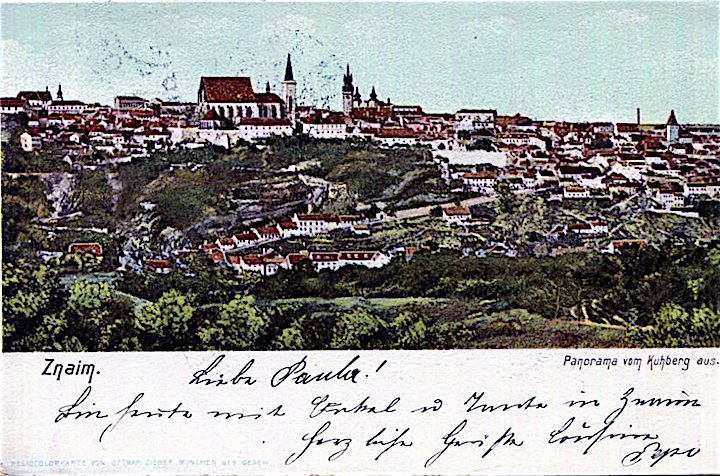 Znaim.
Panorama vom Kuhberg aus.
Liebe Paula!
Bin heute mit Onkel u Tante in Znaim
Herzliche Grüße Cousine
HELIOCOLORKARTE VON OTTMAR ZIEHER, MÜNCHEN GES. GESCH.